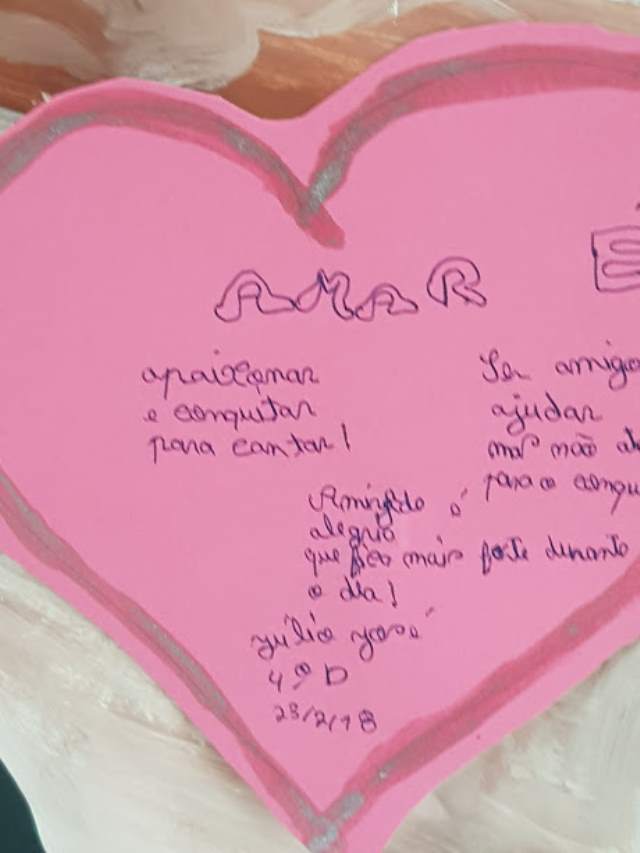 AMAR É
apaixonar
e conquitar
para cantar!
Ser amigo
ajudar
mas não
para o conqu
Amizade é
alegria
que fica mais forte durante
o dia!
Júlio José
4º D
23/2/18